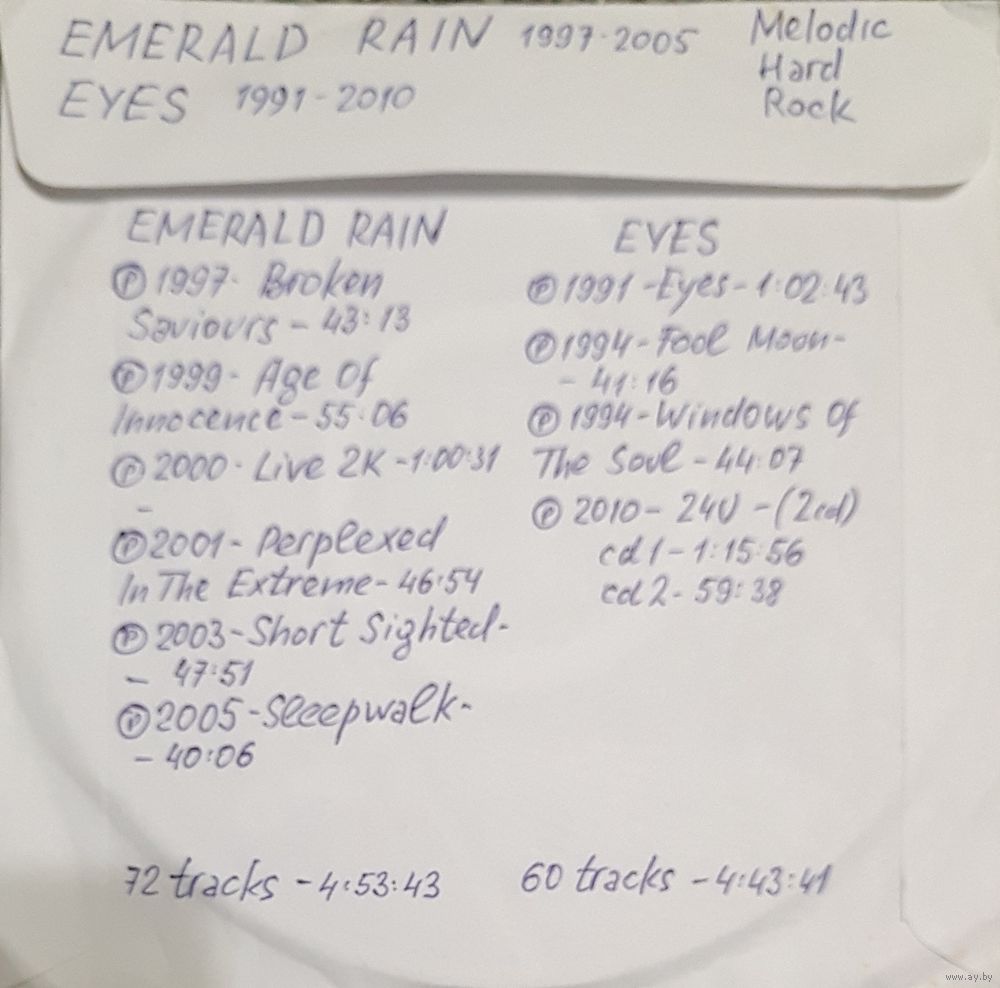 EMERALD RAIN 1997-2005
EYES 1991-2010
Melodic
Hard
Rock
EMERALD RAIN
℗ 1997- Broken
Saviours - 43:13
℗ 1999- Age Of
Innocence - 55:06
℗ 2000- Live 2K - 1:00:31
-
℗ 2001- Perplexed
In The Extreme - 46:54
℗ 2003- Short Sighted-
- 47:51
℗ 2005- Sleepwalk-
- 40:06
72 tracks - 4:53:43
EYES
℗ 1991-Eyes-1:02:43
℗ 1994-Fool Moon-
- 41:16
℗ 1994-Windows Of
The Soul - 44:07
℗ 2010- 24U - (2cd)
cd1 - 1:15:56
cd2- 59:38
60 tracks - 4:43:41
www.ay.by